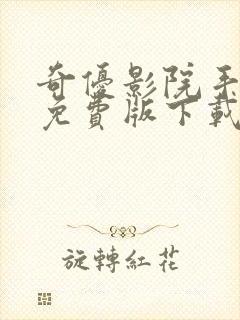 奇優影院手
免費版下載
旋轉紅花